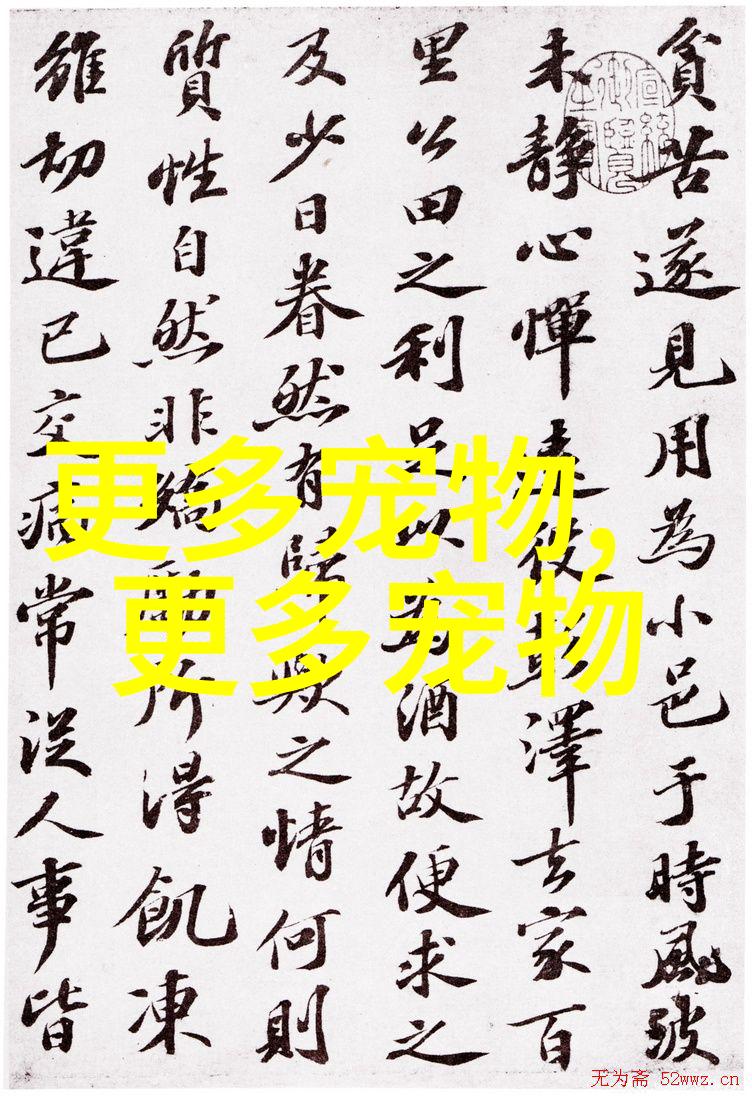 貧苦遂見用為小邑于時風波
未靜心憚遠役彭澤去家百
里公田之利足以為酒故便求之
及少日眷然有歸歟之情何則
質性自然非矯勵所得飢凍
雖切違己交病常從人事皆
更多宠物,
更多宠物
无为斋 52wwz.cn